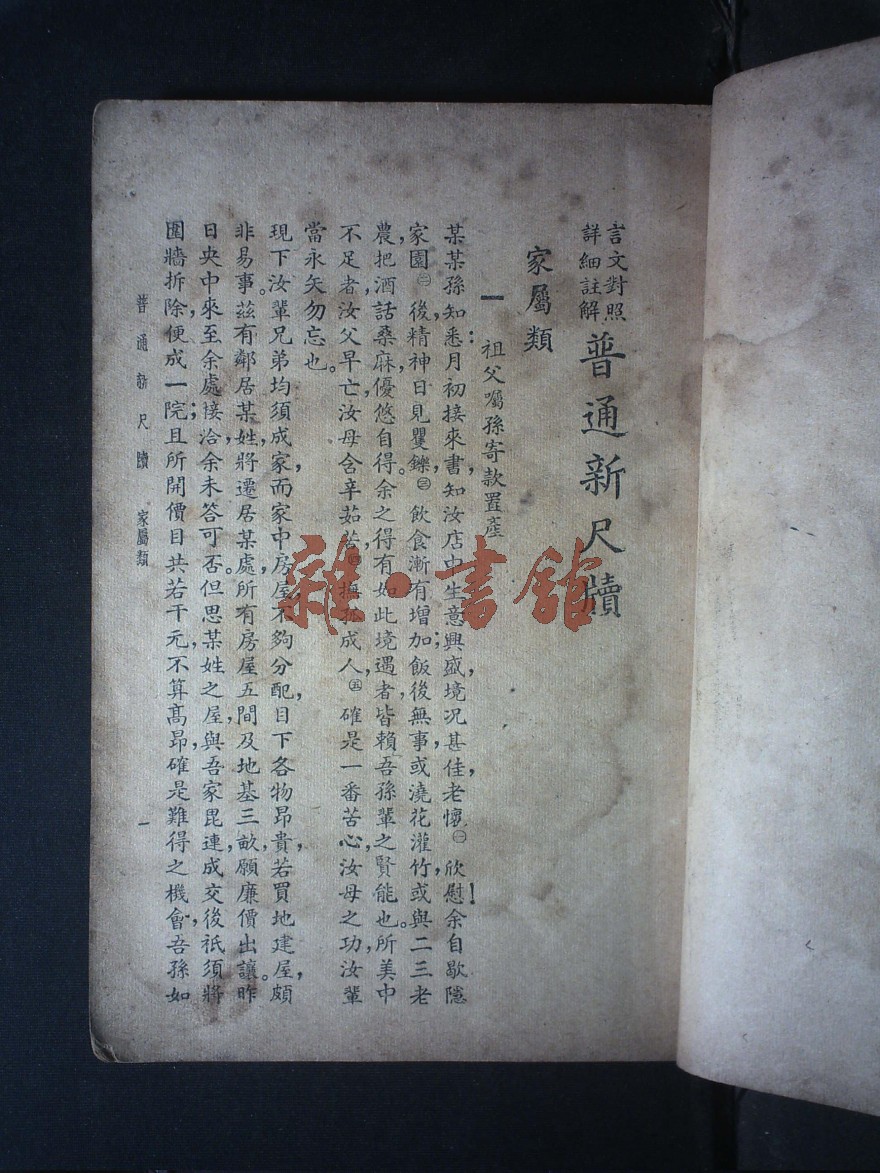 言文對照
詳細註解
普通新尺牘
家屬類
一 祖父囑孫寄款置產
某某孫知悉：月初接來書，知汝店中生意興盛，境況甚佳，老懷㊀欣慰！余自歇隱
家園，㊁後精神日見矍鑠，㊂飲食漸有增加；飯後無事，或澆花灌竹，或與二三老
農，把酒話桑麻，優悠自得。余之得有如此境遇者，皆賴吾孫輩之賢能也。所美中
不足者，汝父早亡，汝母含辛茹苦，㊃撫孤成人，㊄確是一番苦心，汝母之功，汝輩
當永矢勿忘也。
現下汝輩兄弟，均須成家，而家中房屋，不夠分配，目下各物昂貴，若買地建屋，頗
非易事。茲有鄰居某姓，將遷居某處，所有房屋五間，及地基三畝，願廉價出讓。昨
日央中來至余處接洽，余未答可否。但思某姓之屋，與吾家毘連，成交後，祇須將
圍牆拆除，便成一院；且所開價目，共若干元，不算高昂，確是難得之機會，吾孫如
普通新尺牘 家屬類 一
雜·書館